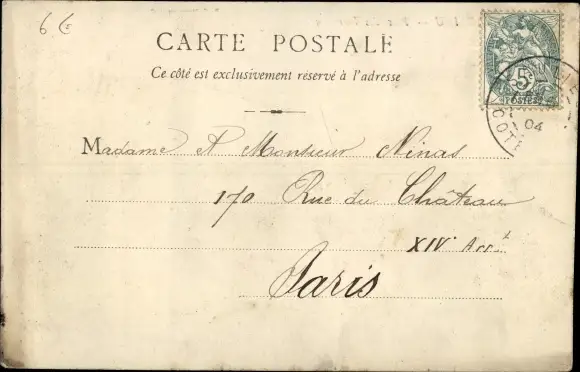 6 €
CARTE POSTALE
Ce côté est exclusivement réservé à l'adresse
5
POSTES
04
COTE
Madame et Monsieur Ninas
170 Rue du Château
XIVe Arrt
Paris